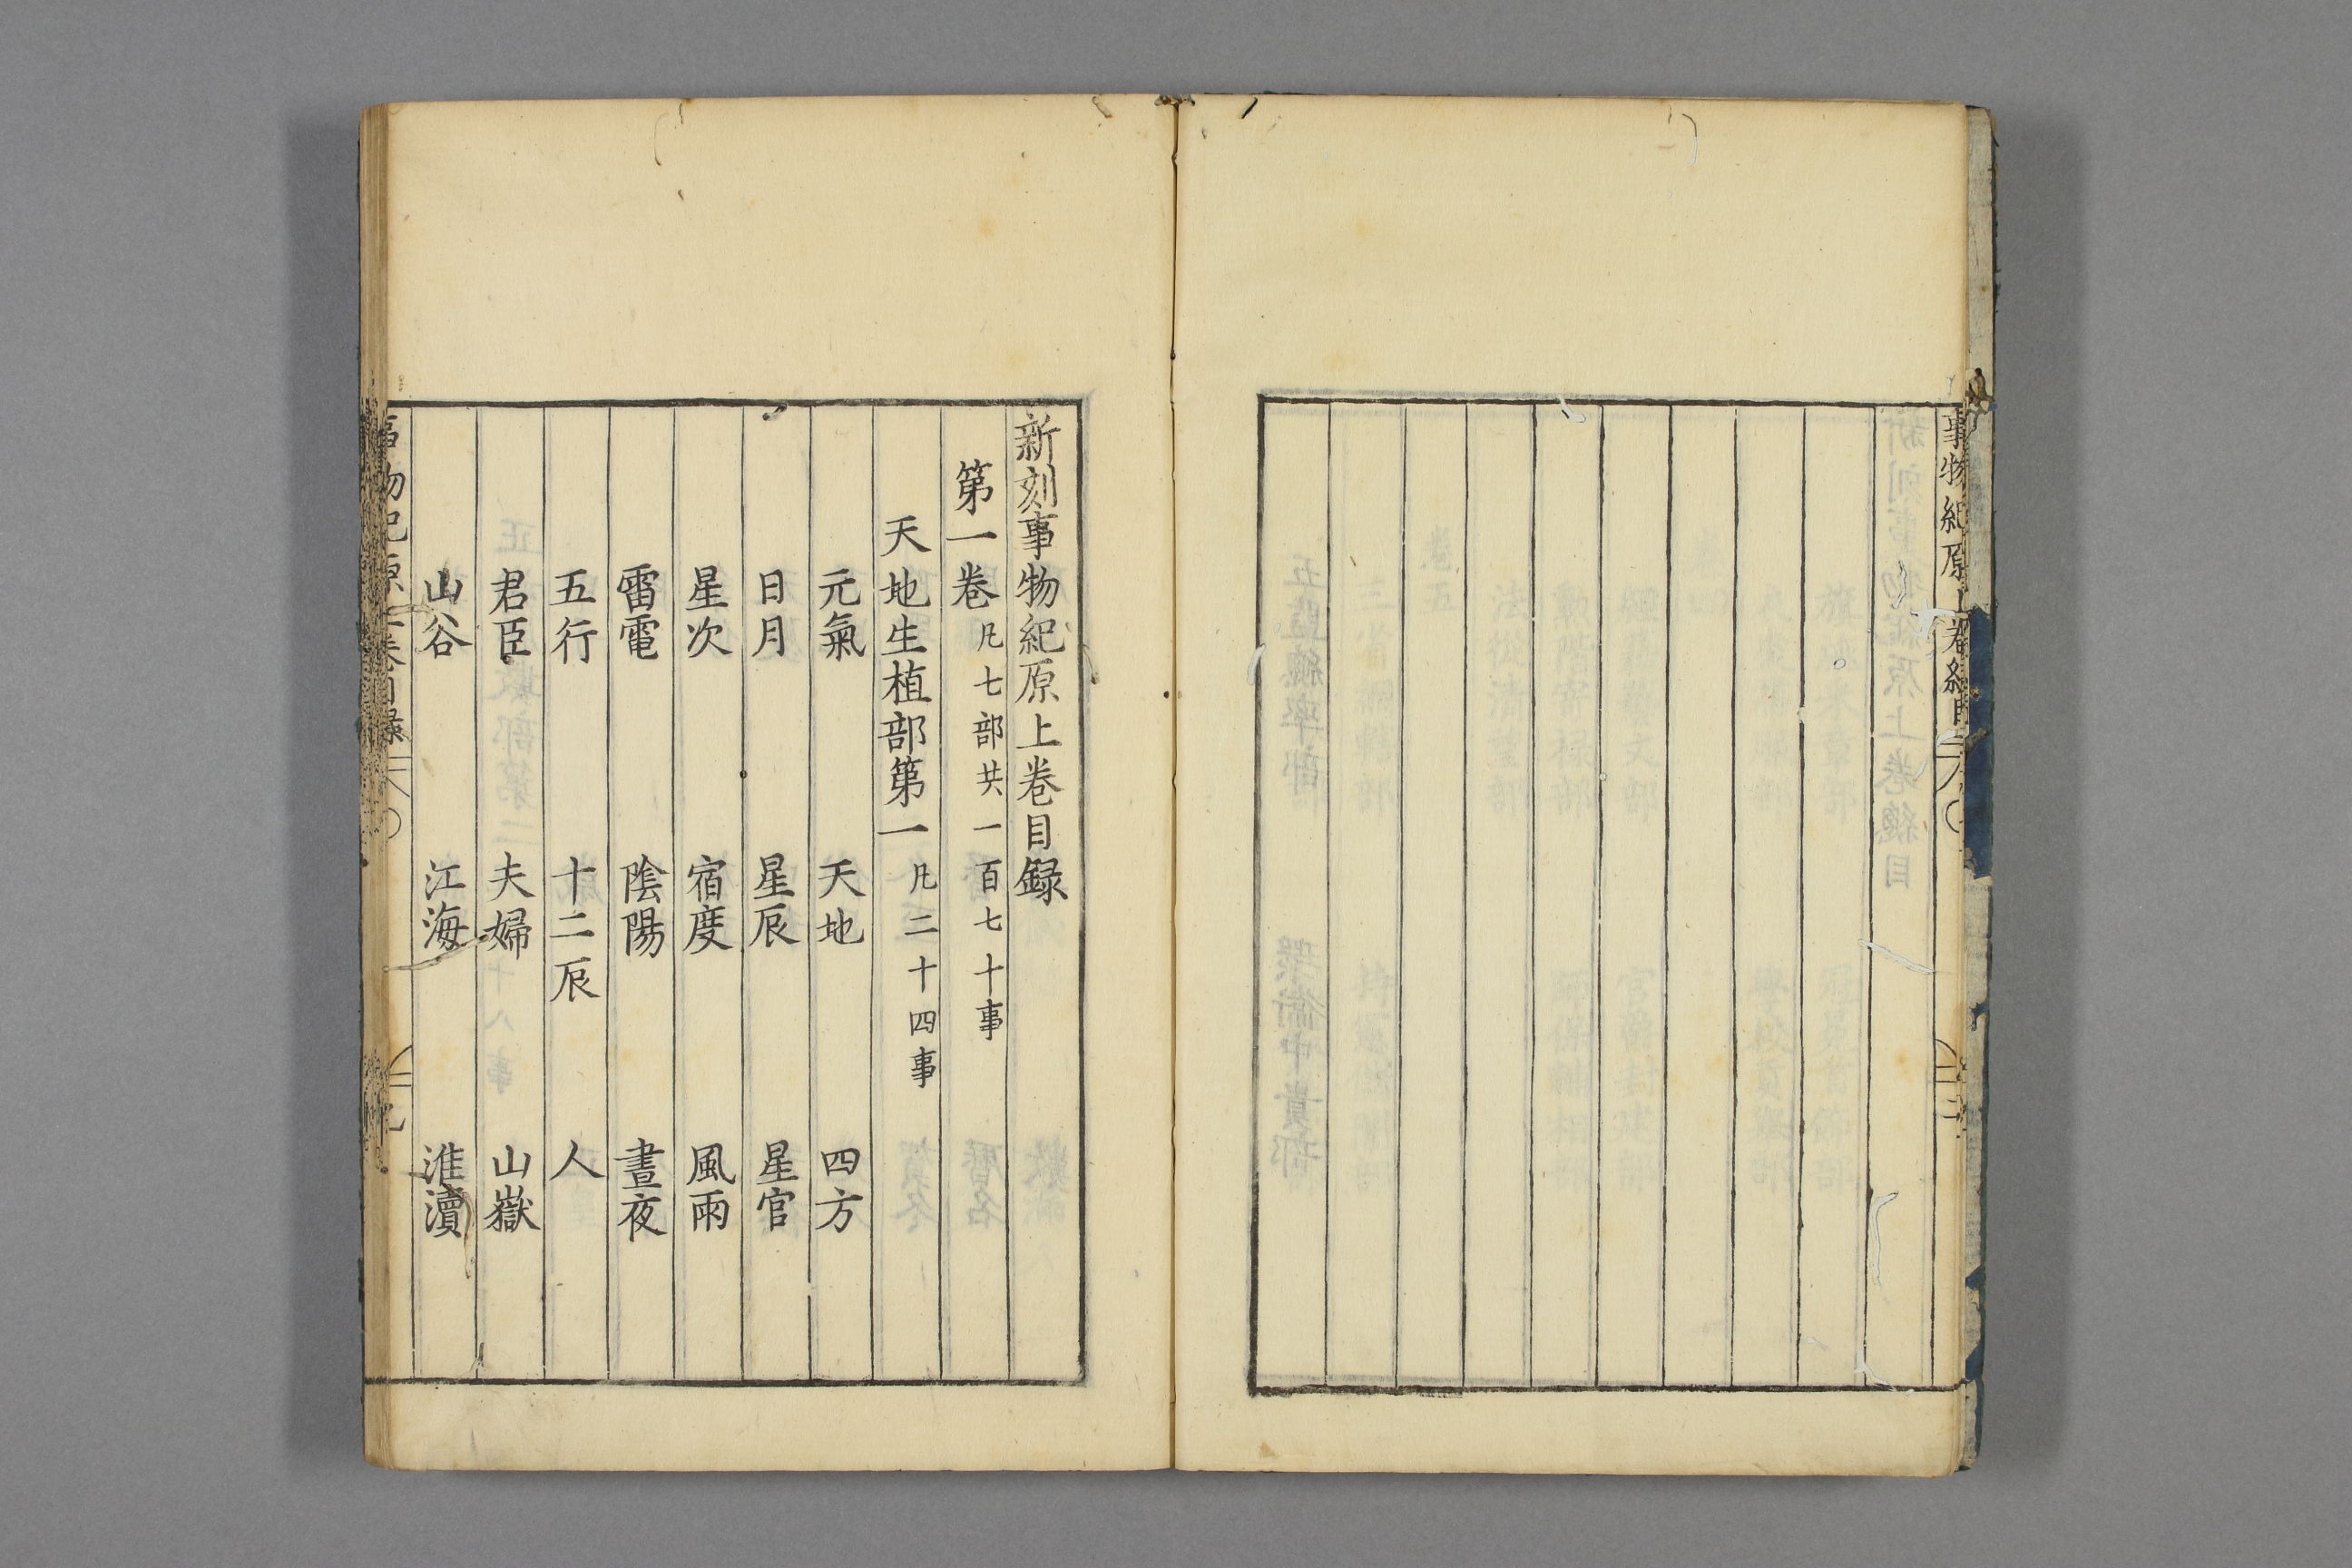 事物紀原上卷總目
二
新刻事物紀原上卷目録
第一卷 凡七部共一百七十事
天地生植部第一 凡二十四事
元氣 天地 四方
日月 星辰 星官
星次 宿度 風雨
雷電 陰陽 晝夜
五行 十二辰 人
君臣 夫婦 山嶽
山谷 江海 淮瀆
事物紀原上卷目録